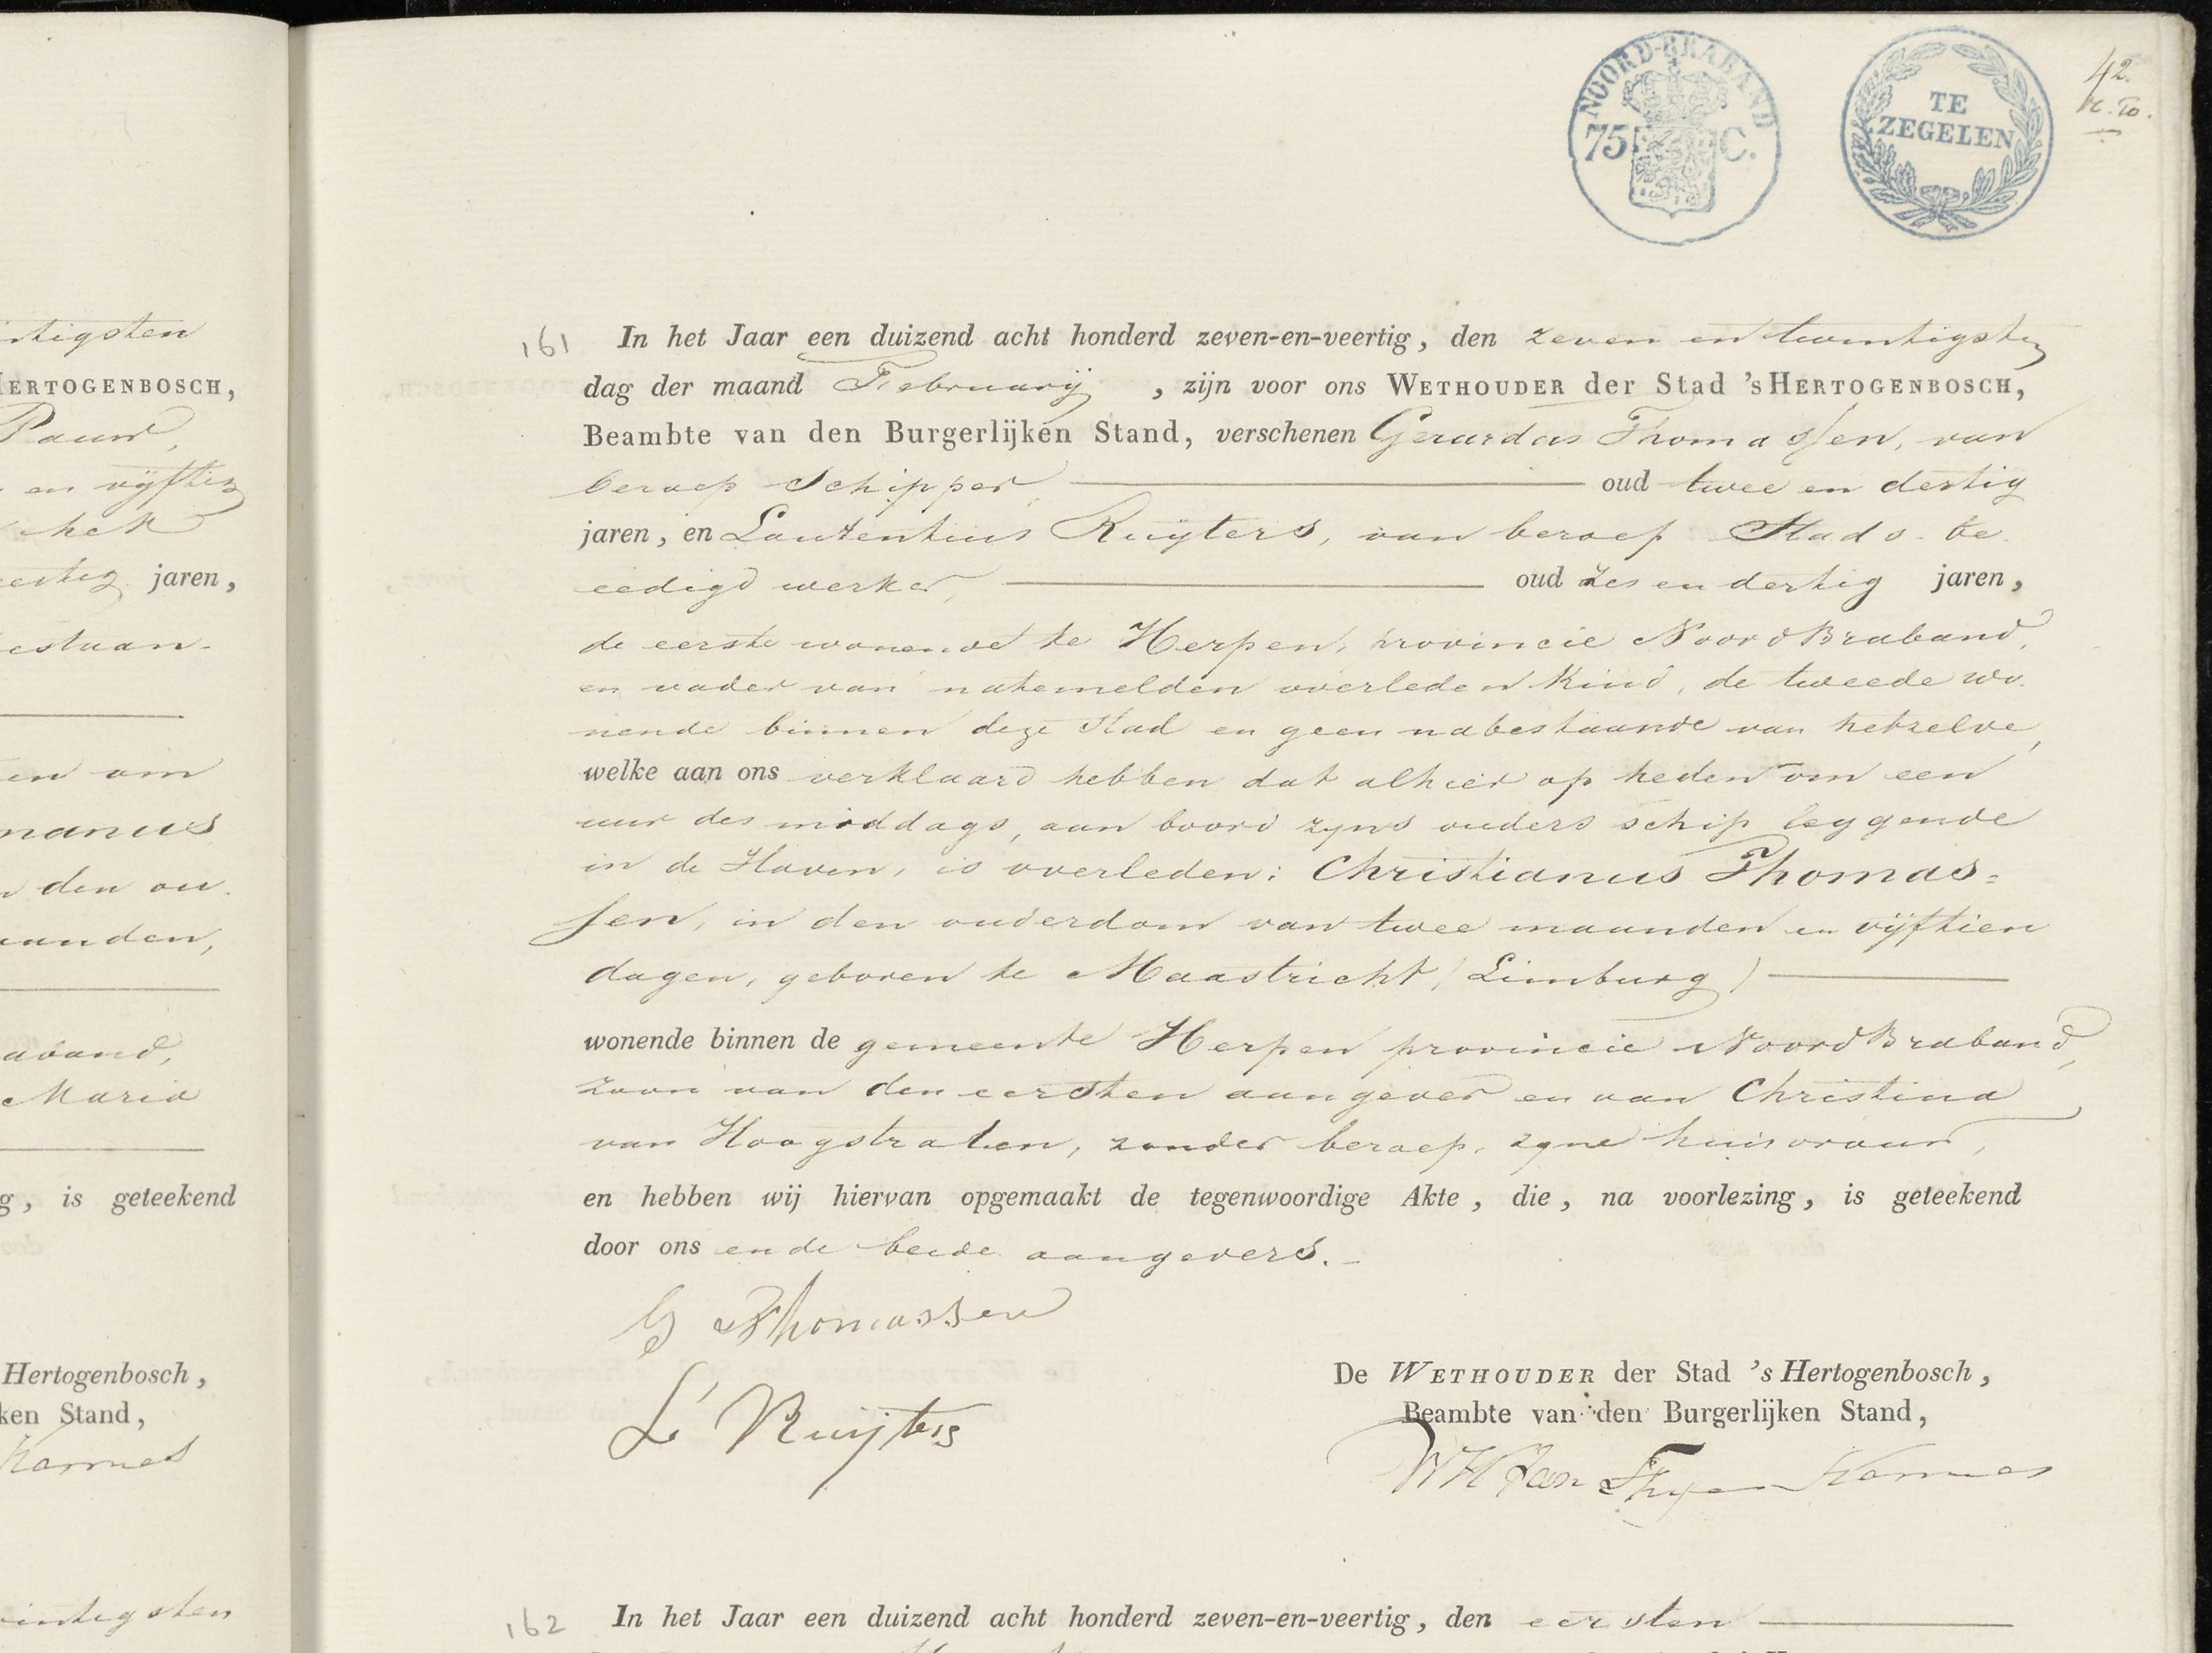 NOORD-BRABAND
75 C.
TE
ZEGELEN
42.
ntigsten
HERTOGENBOSCH,
Pauw,
en vijftig
hek
jaren,
estaan-
en om
manus
den ou-
aanden,
aband,
Maria
g, is geteekend
Hertogenbosch,
ken Stand,
Kamies
intigsten
161 In het Jaar een duizend acht honderd zeven-en-veertig, den zeven en twintigsten
dag der maand Februarij , zijn voor ons WETHOUDER der Stad 's HERTOGENBOSCH,
Beambte van den Burgerlijken Stand, verschenen Gerardus Thomassen, van
beroep Schipper, oud twee en dertig
jaren, en Laurentius Ruijters, van beroep Stads be-
eedigd werker, oud zes en dertig jaren,
de eerste wonende te Herpen, provincie Noord Braband,
en vader van natemelden overleden kind, de tweede wo-
nende binnen deze Stad en geen nabestaande van hetzelve,
welke aan ons verklaard hebben dat alhier op heden om een
uur des middags, aan boord zyns ouders schip leggende
in de Haven, is overleden: Christianus Thomas=
sen, in den ouderdom van twee maanden en vijftien
dagen, geboren te Maastricht (Limburg)
wonende binnen de gemeente Herpen provincie Noord Braband,
zoon van den eersten aangever en van Christina
van Hoogstraten, zonder beroep, zyne huisvrouw,
en hebben wij hiervan opgemaakt de tegenwoordige Akte, die, na voorlezing, is geteekend
door ons en de beide aangevers.-
G Thomassen
L Ruijters
De WETHOUDER der Stad 's Hertogenbosch,
Beambte van den Burgerlijken Stand,
162 In het Jaar een duizend acht honderd zeven-en-veertig, den eersten